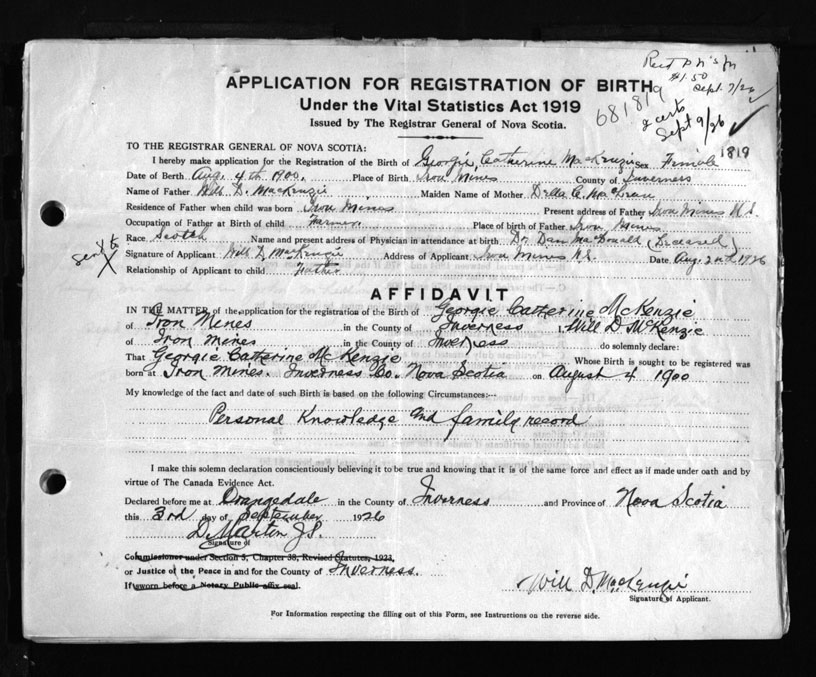 Recd
$1.50
Sept. 7/26
681819
2 certs
Sept 9/26
APPLICATION FOR REGISTRATION OF BIRTH
Under the Vital Statistics Act 1919
Issued by The Registrar General of Nova Scotia.
1819
TO THE REGISTRAR GENERAL OF NOVA SCOTIA:
I hereby make application for the Registration of the Birth of Georgie Catherine MacKenzie Sex Female
Date of Birth Aug. 4th 1900. Place of Birth Iron Mines County of Inverness
Name of Father Will. D. MacKenzie Maiden Name of Mother
Residence of Father when child was born Iron Mines Present address of Father Iron Mines N.S.
Occupation of Father at Birth of child Farmer Place of birth of Father Iron Mines
Race Scotch Name and present address of Physician in attendance at birth Dr. Dan MacDonald (Deceased)
Signature of Applicant Will D. MacKenzie Address of Applicant Iron Mines N.S. Date Aug. 2nd 1926
Relationship of Applicant to child Father
AFFIDAVIT
IN THE MATTER of the application for the registration of the Birth of Georgie Catherine McKenzie
of Iron Mines in the County of Inverness I, Will D. McKenzie
of Iron Mines in the County of Inverness do solemnly declare:
That Georgie Catherine McKenzie Whose Birth is sought to be registered was
born at Iron Mines. Inverness Co. Nova Scotia on August 4 1900
My knowledge of the fact and date of such Birth is based on the following Circumstances:—
Personal Knowledge and family record
I make this solemn declaration conscientiously believing it to be true and knowing that it is of the same force and effect as if made under oath and by
virtue of The Canada Evidence Act.
Declared before me at Orangedale in the County of Inverness and Province of Nova Scotia
this 3rd day of September 1926
D. Martin J.P.
Signature of
Commissioner under Section 5, Chapter 38, Revised Statutes, 1923,
or Justice of the Peace in and for the County of Inverness.
If sworn before a Notary Public affix seal.
Will D. MacKenzie
Signature of Applicant.
For Information respecting the filling out of this Form, see Instructions on the reverse side.